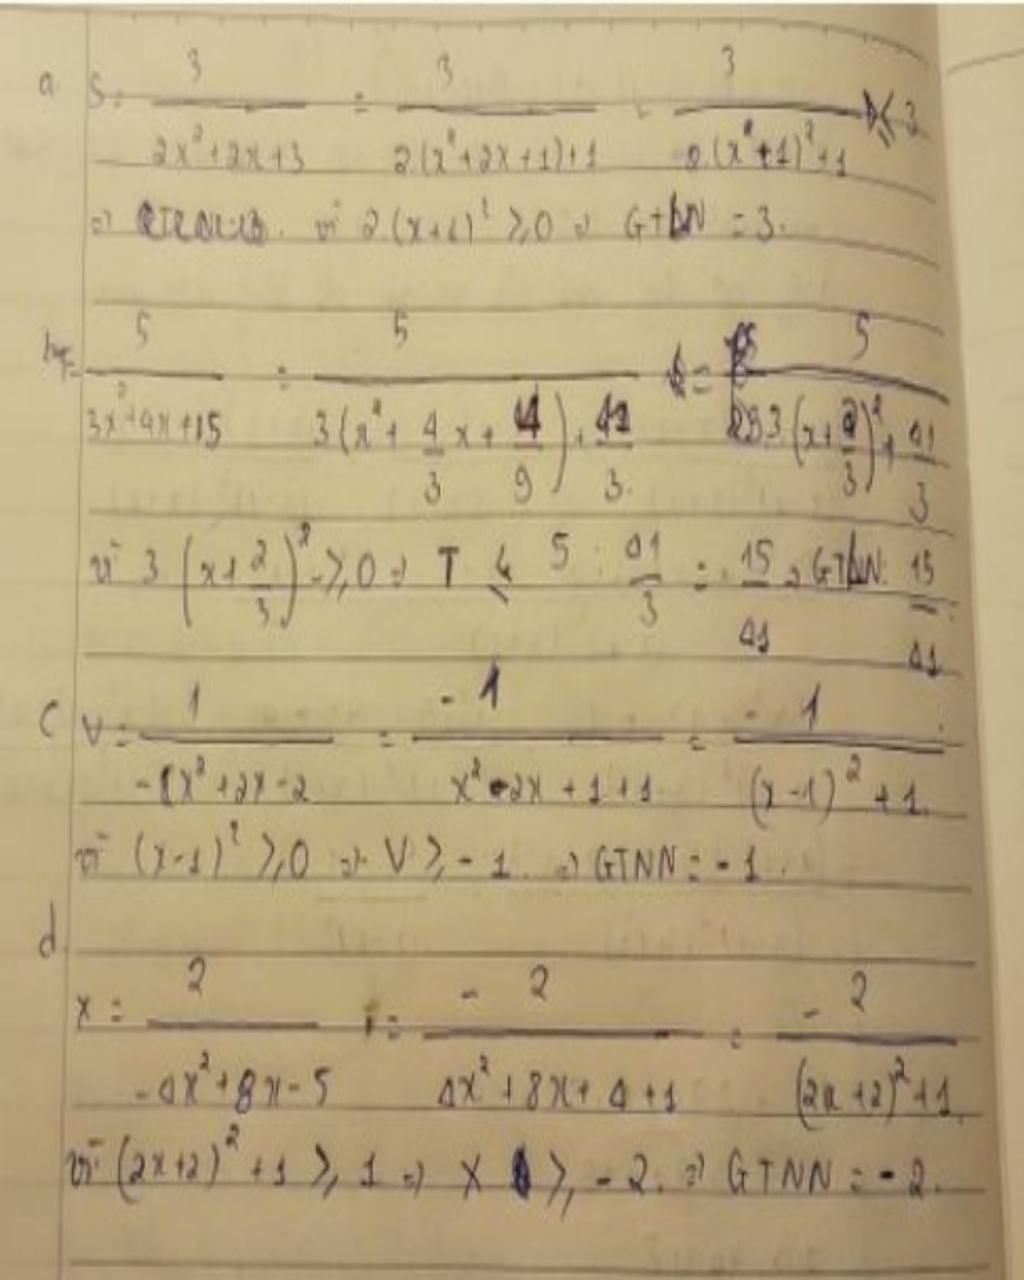 a. S = 3/(2x² + 2x + 3) = 3/(2.(x² + 2x + 1) + 1) = 3/(2.(x + 1)² + 1) ≤ 3
=) vì 2.(x+1)² ≥ 0 =) GTLN = 3.
b, T = 5/(3x² + 4x + 15) = 5/(3(x² + 4/3 x + 4/9) + 41/3) = 5/(3(x + 2/3)² + 41/3)
vì 3(x + 2/3)² ≥ 0 =) T ≤ 5 : 41/3 = 15/41 =) GTLN: 15/41
c V = 1/(-x² + 2x - 2) = -1/(x² - 2x + 1 + 1) = -1/((x - 1)² + 1).
vì (x-1)² ≥ 0 =) V ≥ -1. =) GTNN = -1.
d.
X = 2/(-4x² + 8x - 5) = -2/(4x² + 8x + 4 + 1) = -2/((2x + 2)² + 1).
vì (2x+2)² + 1 ≥ 1 =) X ≥ -2. =) GTNN = -2.